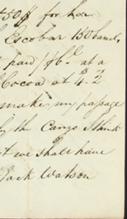 50 $ for her
Escobar 150 hands,
paid $6. at a
Cocoa at 4.2
make my passage
by the Cargo I think
t we shall have
Jack Watson